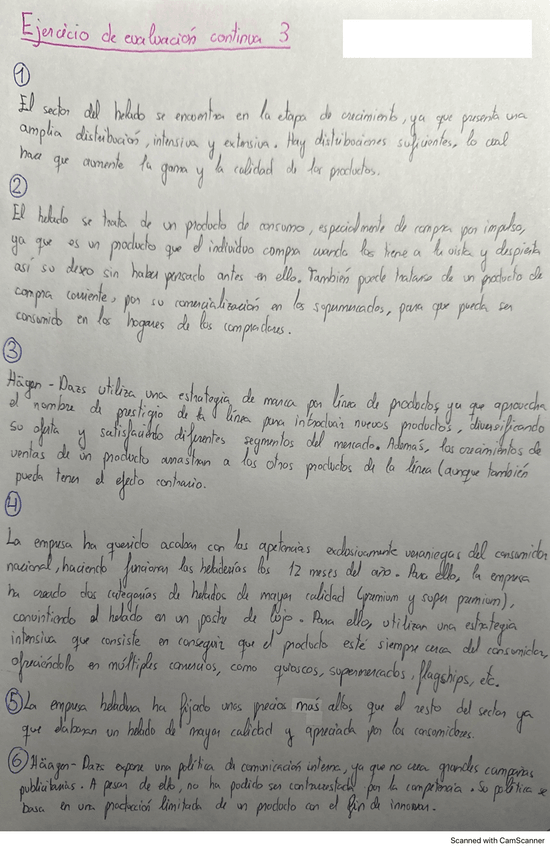 Ejercicio de evaluación continua 3
1
El sector del helado se encuentra en la etapa de crecimiento, ya que presenta una
amplia distribución, intensiva y extensiva. Hay distribuciones suficientes, lo cual
hace que aumente la gama y la calidad de los productos.
2
El helado se trata de un producto de consumo, especialmente de compra por impulso,
ya que es un producto que el individuo compra cuando los tiene a la vista y despierta
así su deseo sin haber pensado antes en ello. También puede tratarse de un producto de
compra corriente, por su comercialización en los supermercados, para que pueda ser
consumido en los hogares de los compradores.
3
Hägen-Dazs utiliza una estrategia de marca por línea de productos, ya que aprovecha
el nombre de prestigio de la línea para introducir nuevos productos, diversificando
su oferta y satisfaciendo diferentes segmentos del mercado. Además, los crecimientos de
ventas de un producto arrastran a los otros productos de la línea (aunque también
pueda tener el efecto contrario.
4
La empresa ha querido acabar con las apetencias exclusivamente veraniegas del consumidor
nacional, haciendo funcionar las heladerías los 12 meses del año. Para ello, la empresa
ha creado dos categorías de helados de mayor calidad (premium y super premium),
convirtiendo el helado en un postre de lujo. Para ello, utilizan una estrategia
intensiva que consiste en conseguir que el producto esté siempre cerca del consumidor,
ofreciéndolo en múltiples comercios, como quioscos, supermercados, flagships, etc.
5 La empresa heladera ha fijado unos precios más altos que el resto del sector ya
que elaboran un helado de mayor calidad y apreciada por los consumidores.
6 Häagen-Dazs expone una política de comunicación interna, ya que no crea grandes campañas
publicitarias. A pesar de ello, no ha podido ser contrarrestada por la competencia. Su política se
basa en una producción limitada de un producto con el fin de innovar.
Scanned with CamScanner